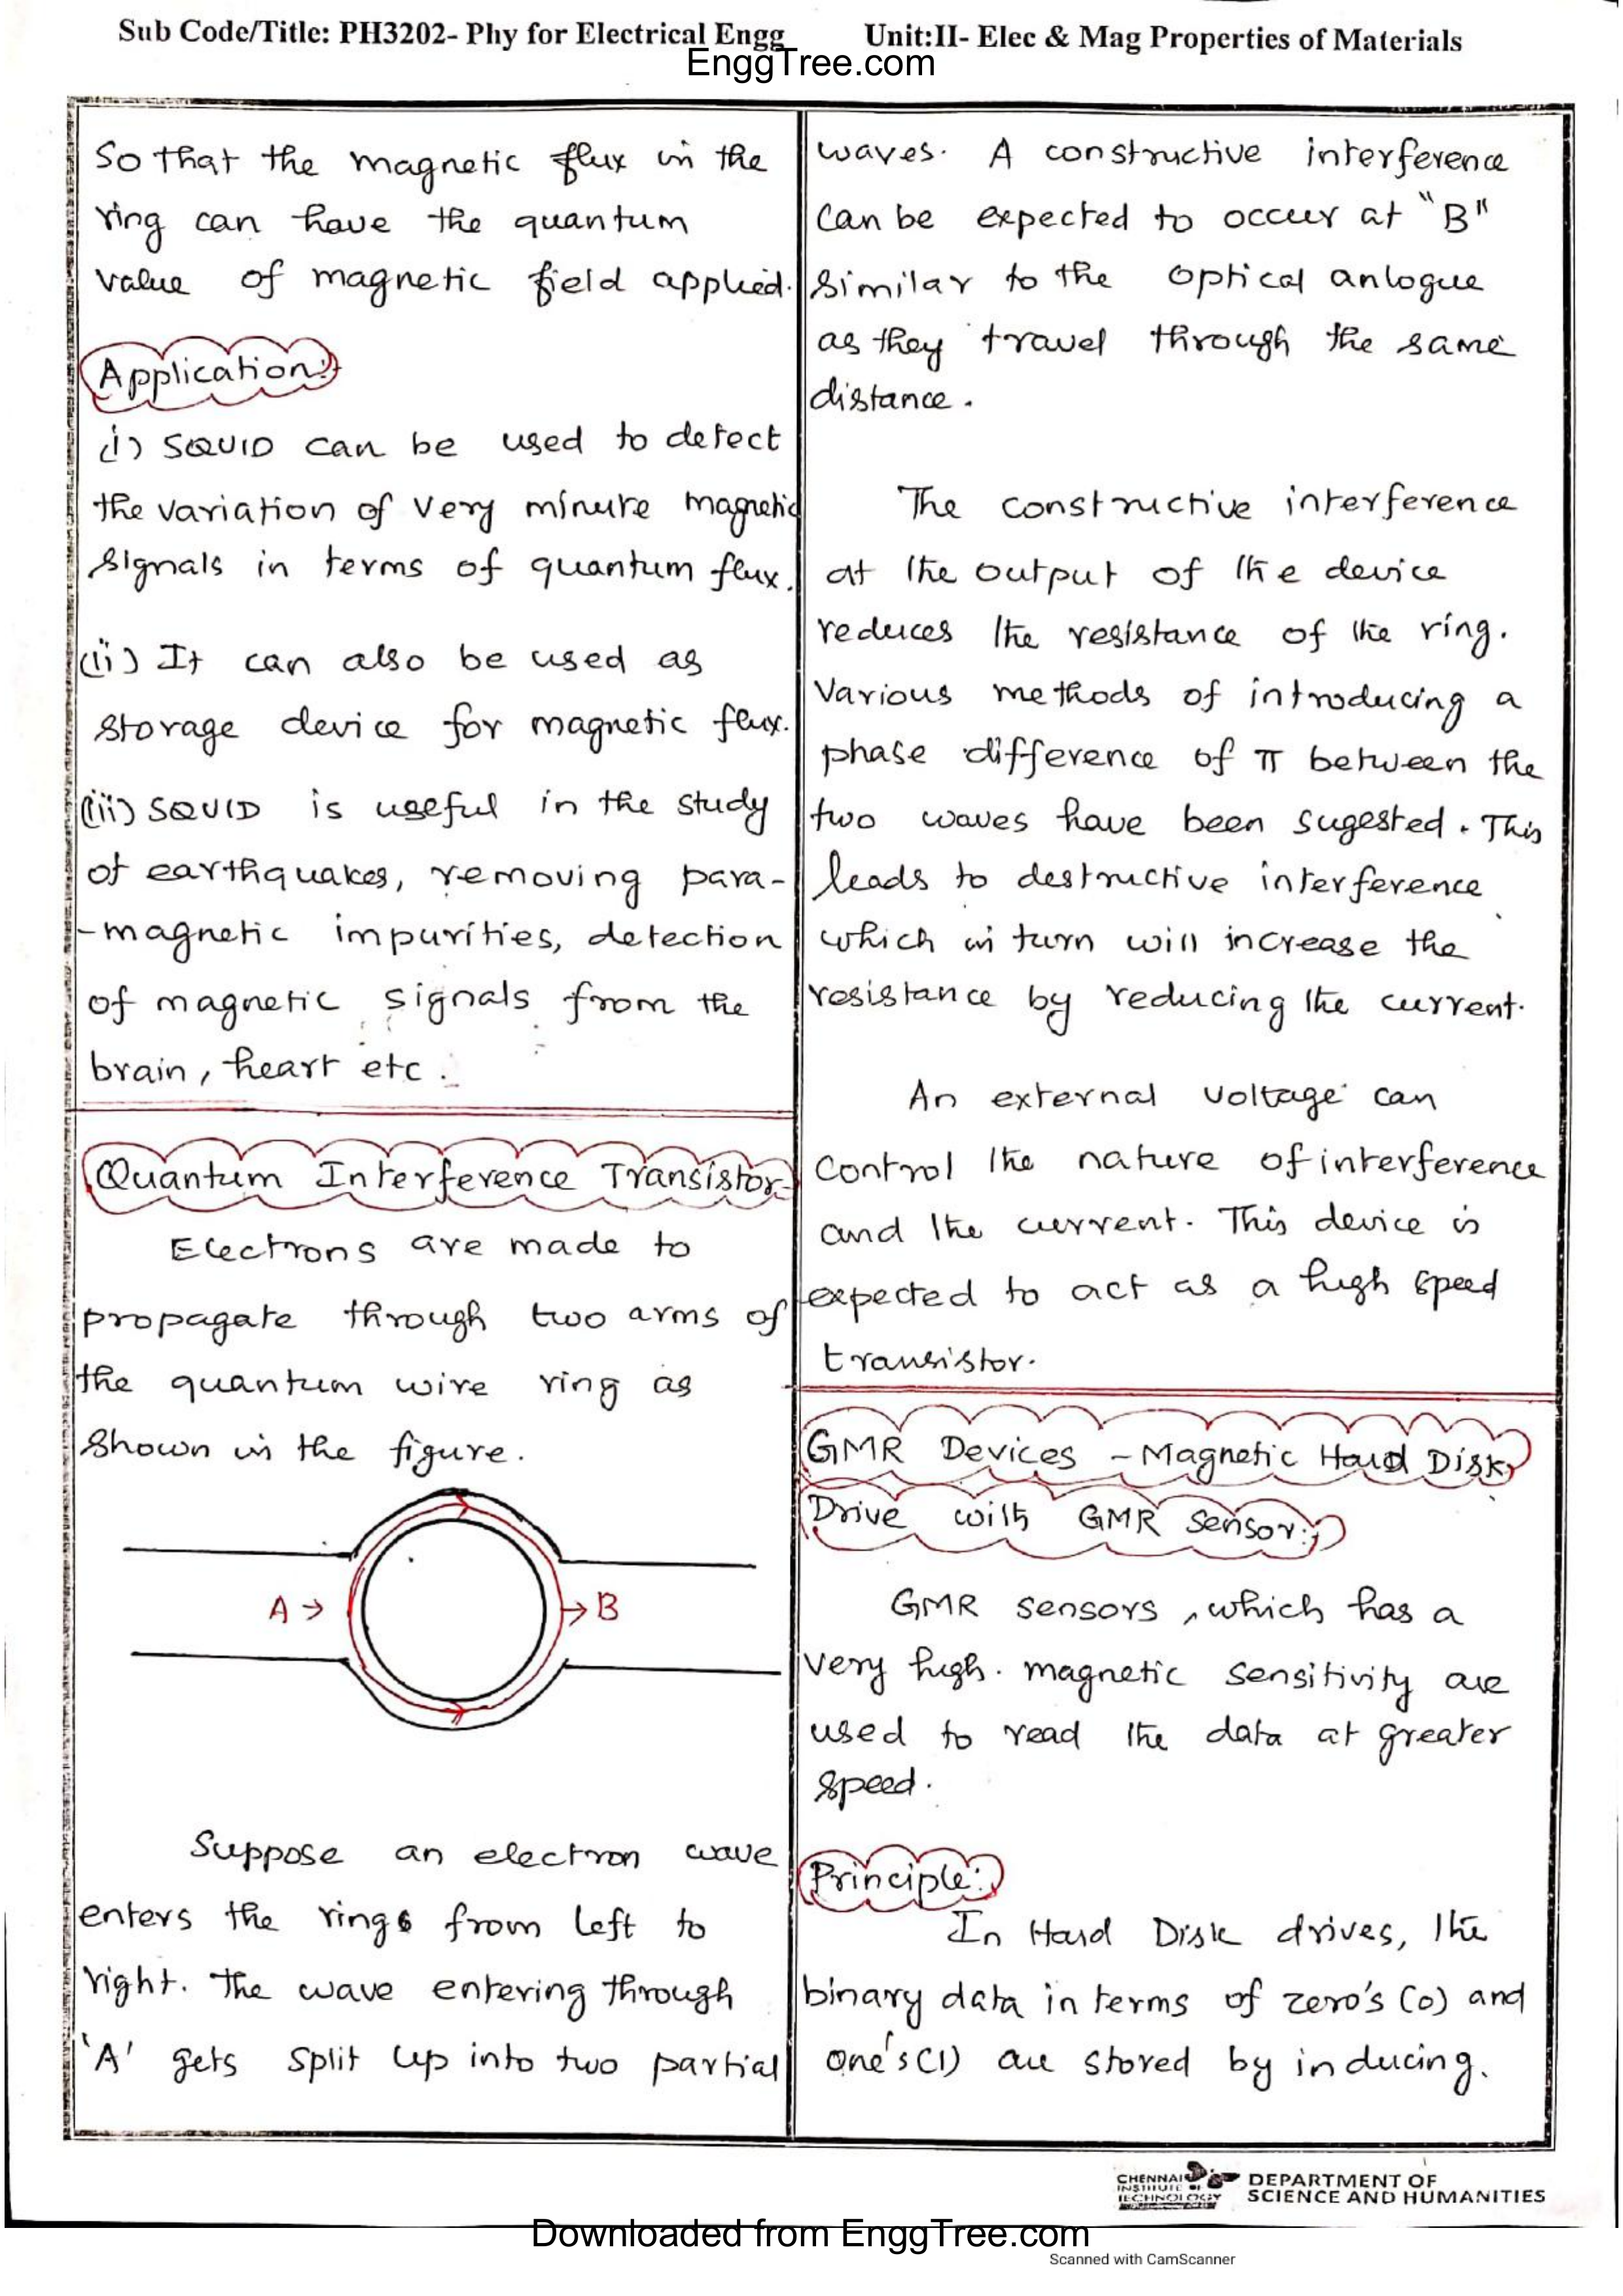 Sub Code/Title: PH3202- Phy for Electrical Engg Unit:II- Elec & Mag Properties of Materials
EnggTree.com
So that the magnetic flux in the
ring can have the quantum
value of magnetic field applied.
Application:
(i) SQUID can be used to detect
the variation of very minute magnetic
signals in terms of quantum flux.
(ii) It can also be used as
storage device for magnetic flux.
(iii) SQUID is useful in the study
of earthquakes, removing para-
-magnetic impurities, detection
of magnetic signals from the
brain, heart etc.
Quantum Interference Transistor
Electrons are made to
propagate through two arms of
the quantum wire ring as
shown in the figure.
A → → B
Suppose an electron wave
enters the rings from left to
right. The wave entering through
'A' gets split up into two partial
waves. A constructive interference
can be expected to occur at "B"
similar to the optical anlogue
as they travel through the same
distance.
The constructive interference
at the output of the device
reduces the resistance of the ring.
Various methods of introducing a
phase difference of π between the
two waves have been sugested. This
leads to destructive interference
which in turn will increase the
resistance by reducing the current.
An external voltage can
control the nature of interference
and the current. This device is
expected to act as a high speed
transistor.
GMR Devices - Magnetic Hard Disk
Drive with GMR Sensor:
GMR sensors, which has a
very high. magnetic sensitivity are
used to read the data at greater
speed.
Principle:
In Hard Disk drives, the
binary data in terms of zero's (0) and
one's (1) are stored by inducing.
CHENNAI
INSTITUTE OF
TECHNOLOGY
DEPARTMENT OF
SCIENCE AND HUMANITIES
Downloaded from EnggTree.com
Scanned with CamScanner